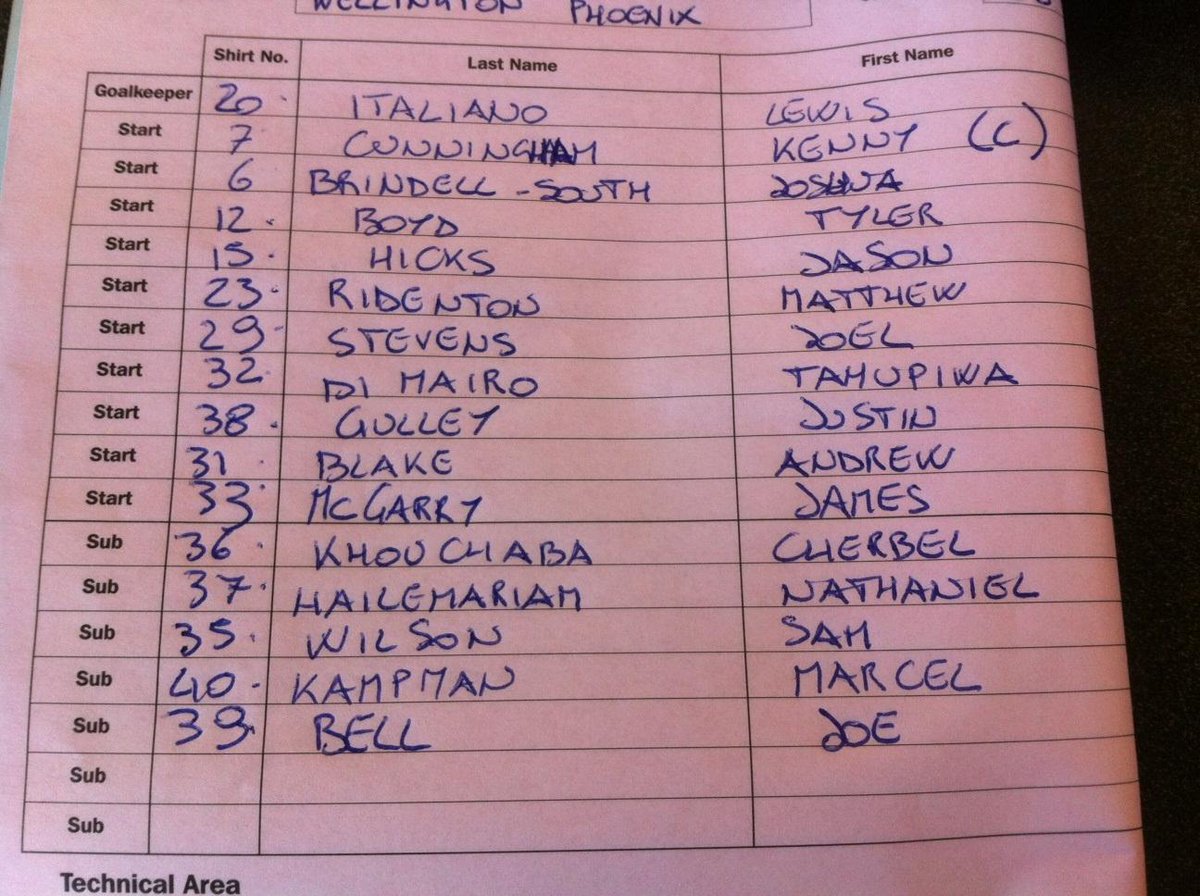 WELLINGTON PHOENIX
Shirt No. Last Name First Name
Goalkeeper 20 ITALIANO LEWIS
Start 7 CUNNINGHAM KENNY (C)
Start 6 BRINDELL-SOUTH JOSHUA
Start 12 BOYD TYLER
Start 15 HICKS JASON
Start 23 RIDENTON MATTHEW
Start 29 STEVENS JOEL
Start 32 DI MAIRO TAHUPIWA
Start 38 GULLEY JUSTIN
Start 31 BLAKE ANDREW
Start 33 MCGARRY JAMES
Sub 36 KHOUCHABA CHERBEL
Sub 37 HAILEMARIAM NATHANIEL
Sub 35 WILSON SAM
Sub 40 KAMPMAN MARCEL
Sub 39 BELL JOE
Sub
Sub
Technical Area